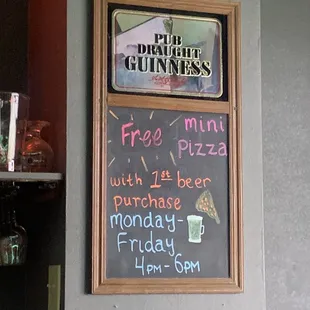 PUB
DRAUGHT
GUINNESS
Free
mini
Pizza
with 1st beer
purchase
Monday-
Friday
4PM-6PM